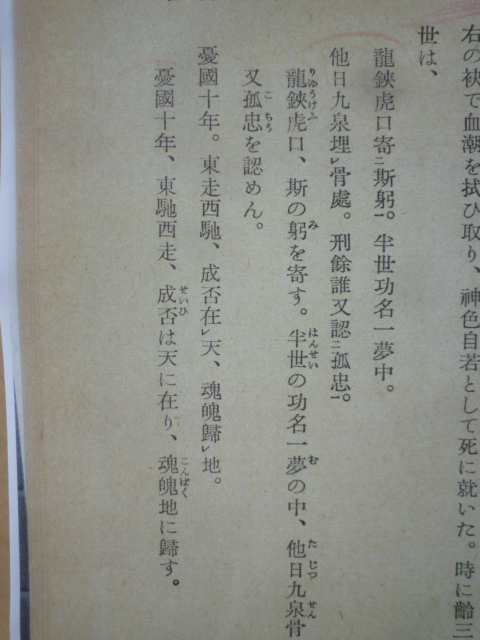 右の袂で血潮を拭ひ取り、神色自若として死に就いた。時に齡三
世は、
龍鋏虎口寄㆓斯躬㆒。半世功名一夢中。
他日九泉埋㆑骨處。刑餘誰又認㆓孤忠㆒。
龍鋏虎口、斯の躬を寄す。半世の功名一夢の中、他日九泉骨
又孤忠を認めん。
憂國十年。東走西馳、成否在㆑天、魂魄歸㆑地。
憂國十年、東馳西走、成否は天に在り、魂魄地に歸す。